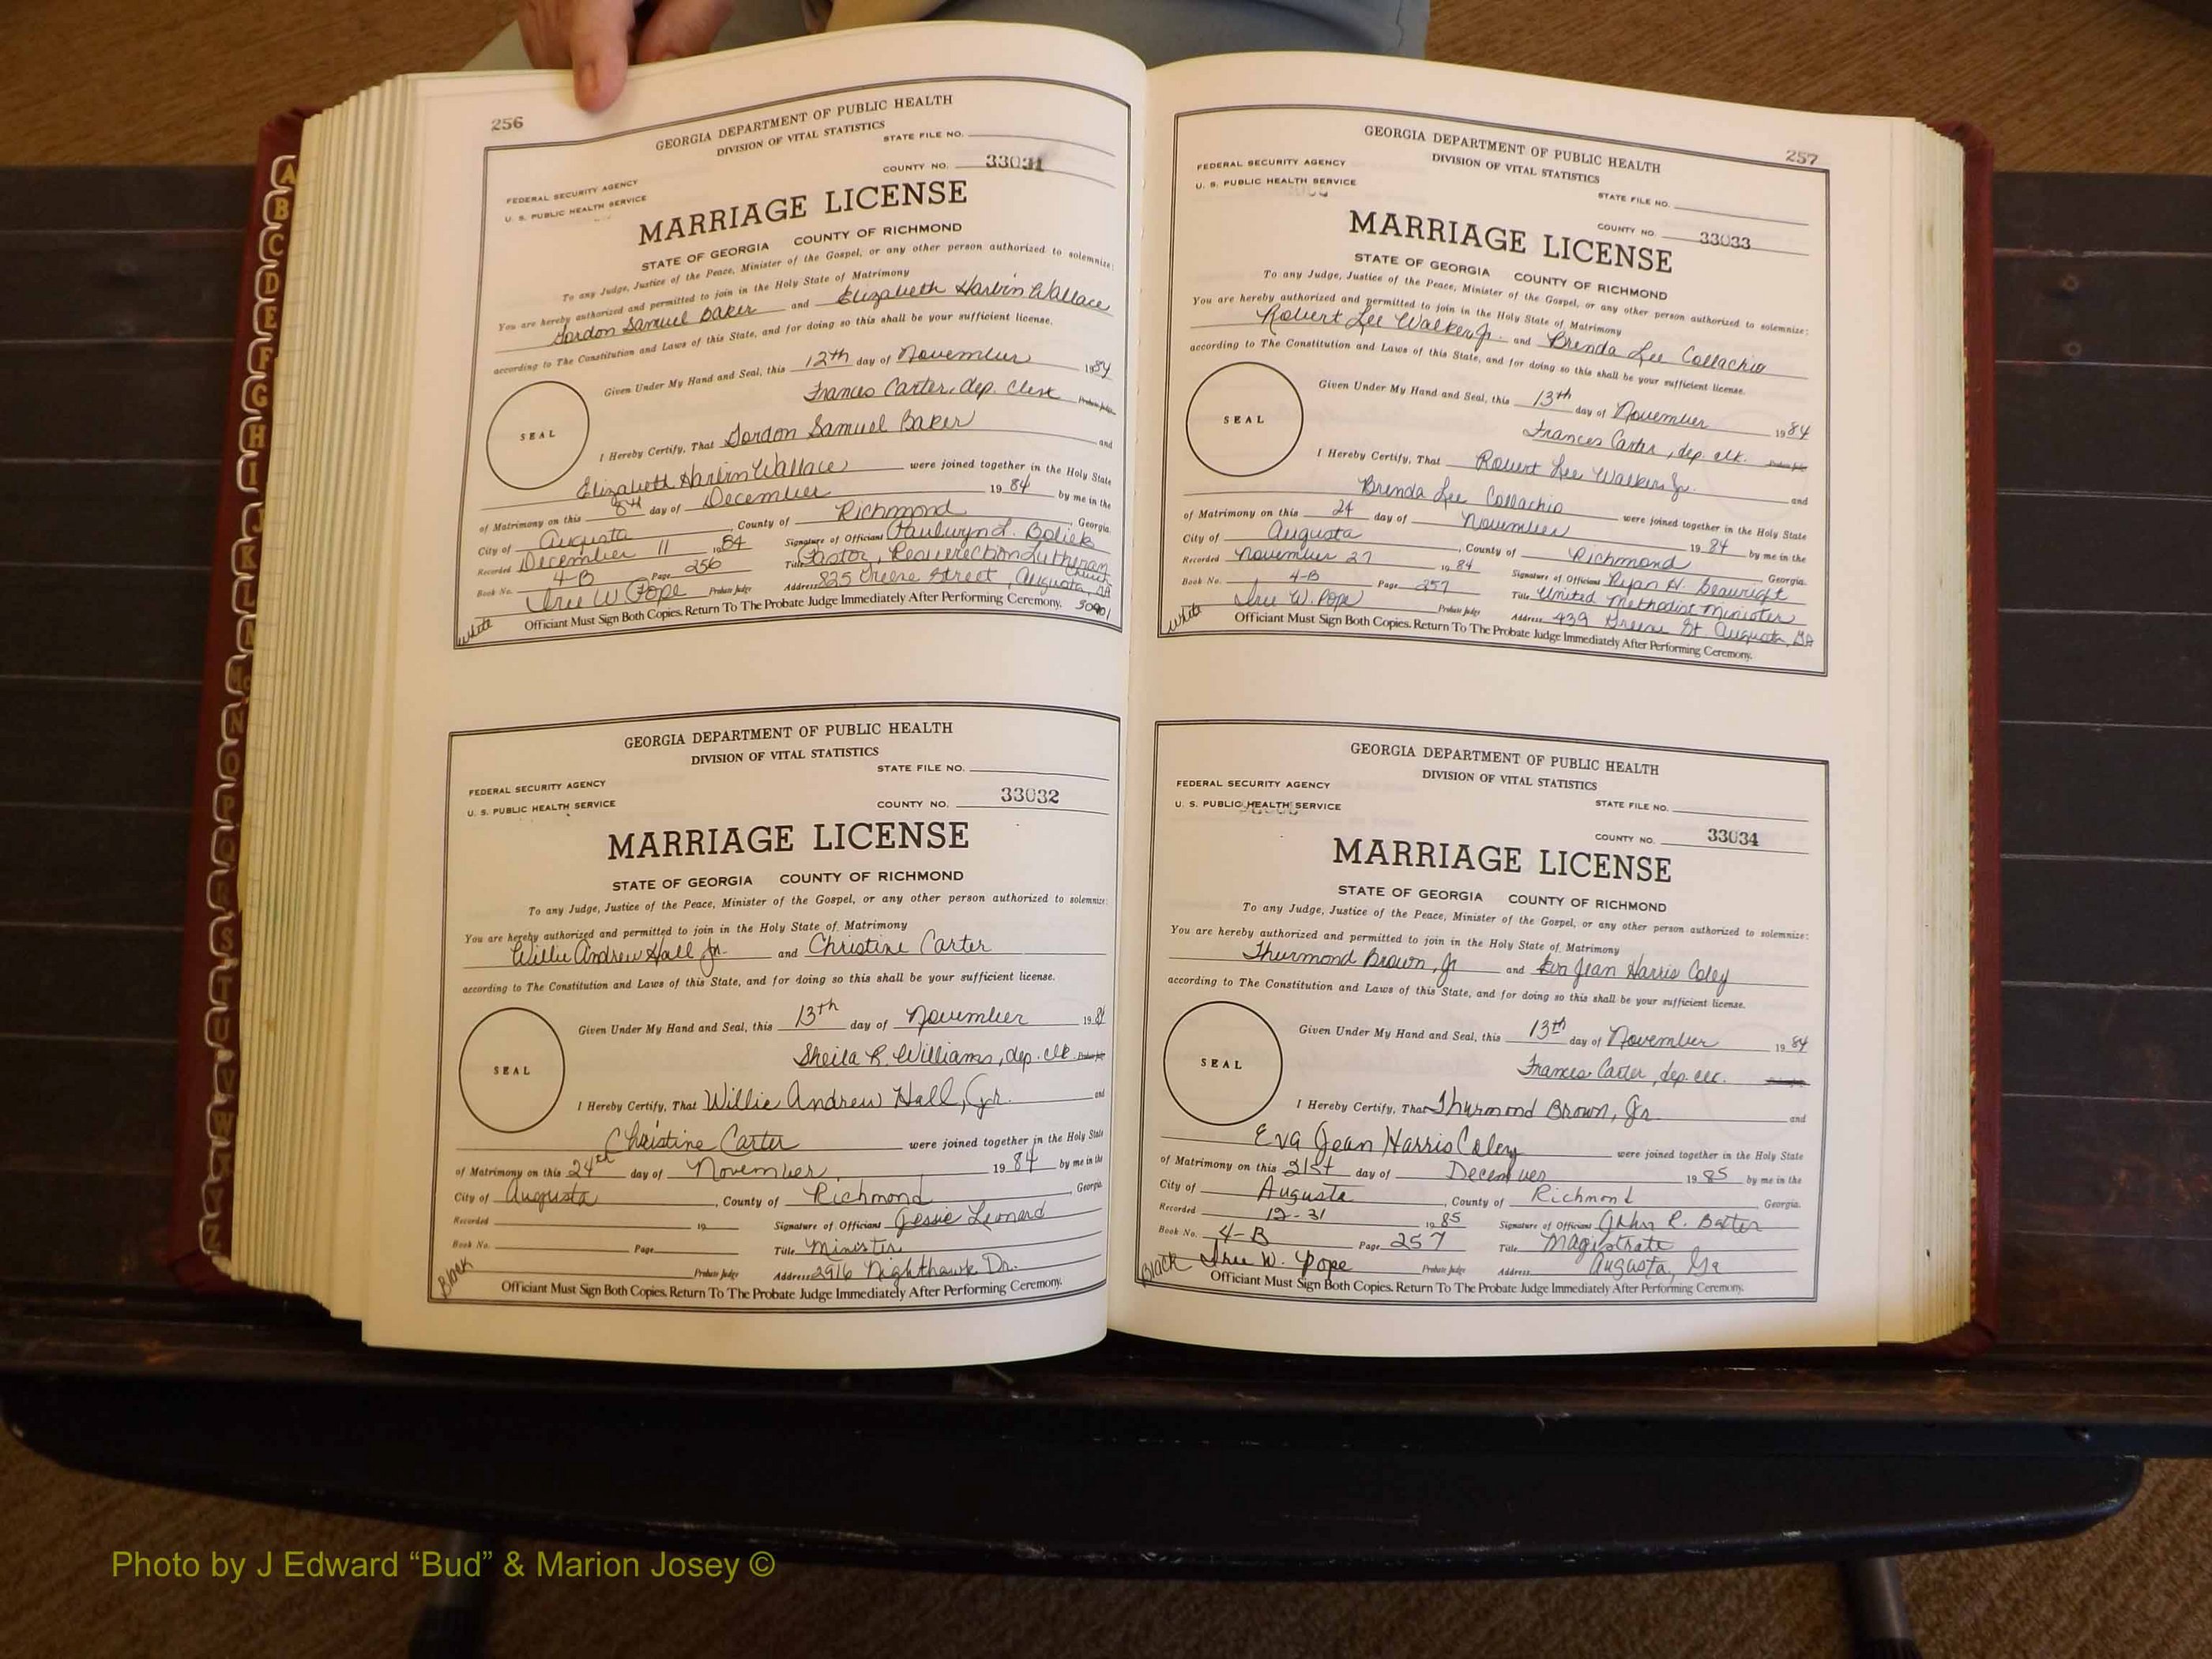 256
GEORGIA DEPARTMENT OF PUBLIC HEALTH
DIVISION OF VITAL STATISTICS
STATE FILE NO.
FEDERAL SECURITY AGENCY
U. S. PUBLIC HEALTH SERVICE
COUNTY NO. 33031
MARRIAGE LICENSE
STATE OF GEORGIA COUNTY OF RICHMOND
To any Judge, Justice of the Peace, Minister of the Gospel, or any other person authorized to solemnize:
You are hereby authorized and permitted to join in the Holy State of Matrimony
Gordon Samuel Baker and Elizabeth Harbin Wallace
according to The Constitution and Laws of this State, and for doing so this shall be your sufficient license.
Given Under My Hand and Seal, this 12th day of November 1984
Frances Carter, dep. Clerk Probate Judge
SEAL
I Hereby Certify, That Gordon Samuel Baker and
Elizabeth Harbin Wallace were joined together in the Holy State
of Matrimony on this 8th day of December 19 84 by me in the
City of Augusta, County of Richmond, Georgia.
Recorded December 11 1984 Signature of Officiant Pauluryn L. Boliek
Book No. 4-B Page 256 Title Pastor, Resurrection Lutheran Church
Irue W Pope Probate Judge Address 825 Greene Street, Augusta, GA 30901
White Officiant Must Sign Both Copies. Return To The Probate Judge Immediately After Performing Ceremony.
GEORGIA DEPARTMENT OF PUBLIC HEALTH
DIVISION OF VITAL STATISTICS
STATE FILE NO.
FEDERAL SECURITY AGENCY
U. S. PUBLIC HEALTH SERVICE
COUNTY NO. 33032
MARRIAGE LICENSE
STATE OF GEORGIA COUNTY OF RICHMOND
To any Judge, Justice of the Peace, Minister of the Gospel, or any other person authorized to solemnize:
You are hereby authorized and permitted to join in the Holy State of Matrimony
Willie Andrew Hall Jr. and Christine Carter
according to The Constitution and Laws of this State, and for doing so this shall be your sufficient license.
Given Under My Hand and Seal, this 13th day of November 1984
Sheila R. Williams, dep. clk Probate Judge
SEAL
I Hereby Certify, That Willie Andrew Hall, Jr. and
Christine Carter were joined together in the Holy State
of Matrimony on this 24th day of November 19 84 by me in the
City of Augusta, County of Richmond, Georgia
Recorded 19 Signature of Officiant Jessie Leonard
Book No. Page Title Minister
Probate Judge Address 2916 Nighthawk Dr.
Black Officiant Must Sign Both Copies. Return To The Probate Judge Immediately After Performing Ceremony.
257
GEORGIA DEPARTMENT OF PUBLIC HEALTH
DIVISION OF VITAL STATISTICS
FEDERAL SECURITY AGENCY
U. S. PUBLIC HEALTH SERVICE
STATE FILE NO.
COUNTY NO. 33033
MARRIAGE LICENSE
STATE OF GEORGIA COUNTY OF RICHMOND
To any Judge, Justice of the Peace, Minister of the Gospel, or any other person authorized to solemnize:
You are hereby authorized and permitted to join in the Holy State of Matrimony
Robert Lee Walker Jr. and Brenda Lee Collachio
according to The Constitution and Laws of this State, and for doing so this shall be your sufficient license.
Given Under My Hand and Seal, this 13th day of November 1984
Frances Carter, dep. clk. Probate Judge
SEAL
I Hereby Certify, That Robert Lee Walker Jr. and
Brenda Lee Collachio were joined together in the Holy State
of Matrimony on this 24 day of November 19 84 by me in the
City of Augusta, County of Richmond, Georgia.
Recorded November 27 19 84 Signature of Officiant Ryan H. Seawright
Book No. 4-B Page 257 Title United Methodist Minister
Irue W. Pope Probate Judge Address 439 Greene St. Augusta, GA
White Officiant Must Sign Both Copies. Return To The Probate Judge Immediately After Performing Ceremony.
GEORGIA DEPARTMENT OF PUBLIC HEALTH
DIVISION OF VITAL STATISTICS
FEDERAL SECURITY AGENCY
U. S. PUBLIC HEALTH SERVICE
STATE FILE NO.
COUNTY NO. 33034
MARRIAGE LICENSE
STATE OF GEORGIA COUNTY OF RICHMOND
To any Judge, Justice of the Peace, Minister of the Gospel, or any other person authorized to solemnize:
You are hereby authorized and permitted to join in the Holy State of Matrimony
Thurmond Brown, Jr and Eva Jean Harris Coley
according to The Constitution and Laws of this State, and for doing so this shall be your sufficient license.
Given Under My Hand and Seal, this 13th day of November 19 84
Frances Carter, dep. clk.
SEAL
I Hereby Certify, That Thurmond Brown, Jr. and
Eva Jean Harris Coley were joined together in the Holy State
of Matrimony on this 21st day of December 19 85 by me in the
City of Augusta, County of Richmond Georgia.
Recorded 12-31 19 85 Signature of Officiant John R. Baxter
Book No. 4-B Page 257 Title Magistrate
Irue W. Pope Probate Judge Address Augusta, Ga
Black Officiant Must Sign Both Copies. Return To The Probate Judge Immediately After Performing Ceremony.
A
B
C
D
E
F
G
H
I
J
K
L
M
Mc
N
O
P
Q
R
S
T
U
V
W
Y
Z
Photo by J Edward “Bud” & Marion Josey ©